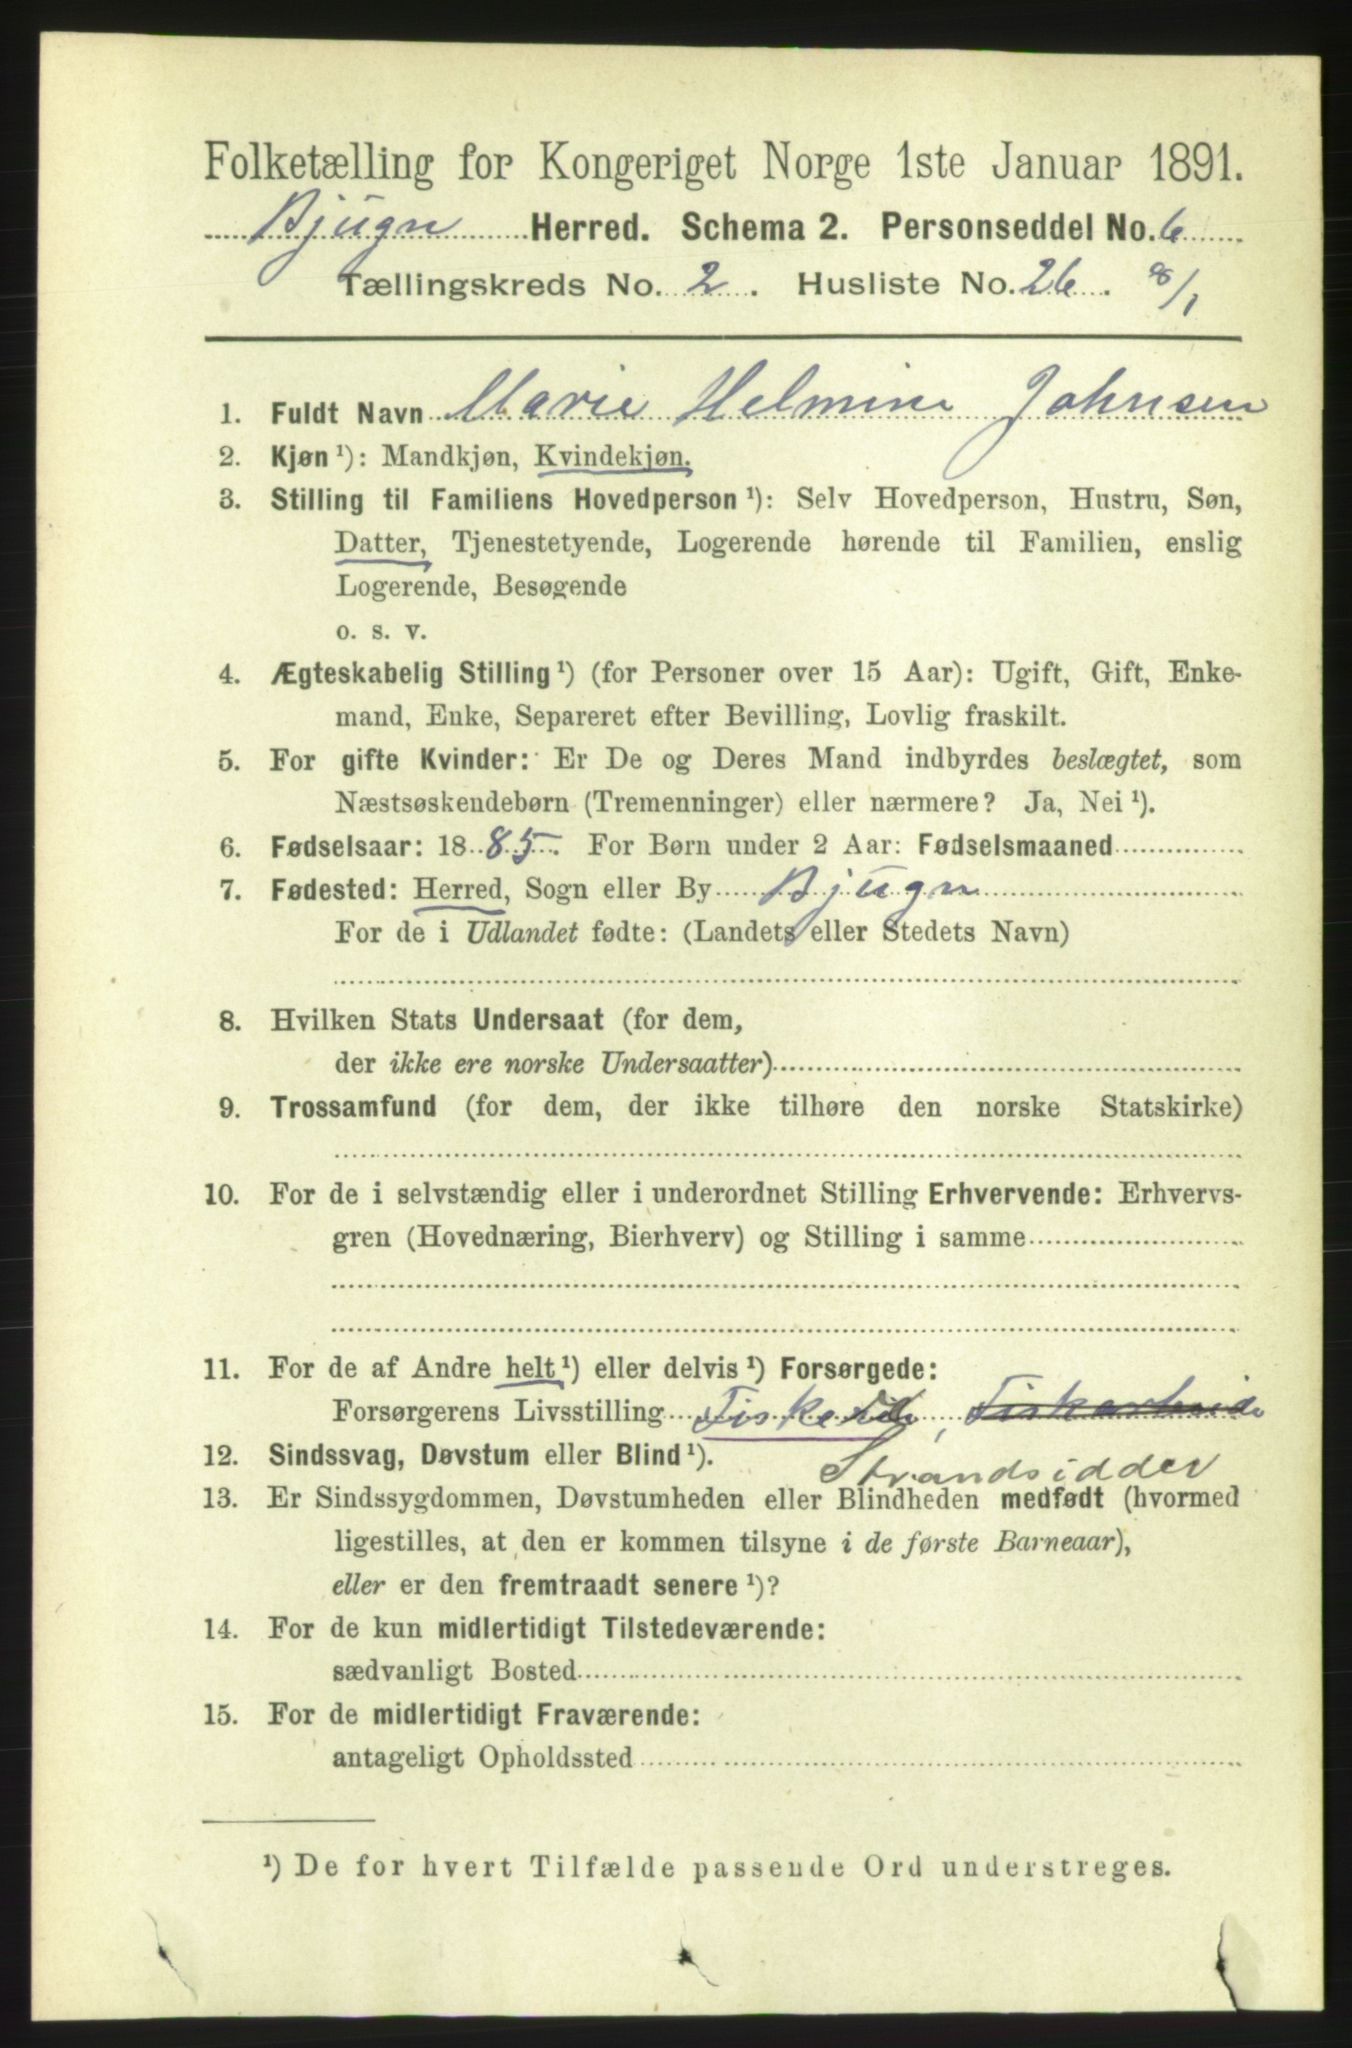 Folketælling for Kongeriget Norge 1ste Januar 1891.
Bjugn Herred. Schema 2. Personseddel No. 6
Tællingskreds No. 2. Husliste No. 26. 8/1
1. Fuldt Navn Marie Helmine Johnsen
2. Kjøn ¹): Mandkjøn, Kvindekjøn.
3. Stilling til Familiens Hovedperson ¹): Selv Hovedperson, Hustru, Søn,
Datter, Tjenestetyende, Logerende hørende til Familien, enslig
Logerende, Besøgende
o. s. v.
4. Ægteskabelig Stilling ¹) (for Personer over 15 Aar): Ugift, Gift, Enke-
mand, Enke, Separeret efter Bevilling, Lovlig fraskilt.
5. For gifte Kvinder: Er De og Deres Mand indbyrdes beslægtet, som
Næstsøskendebørn (Tremenninger) eller nærmere? Ja, Nei ¹).
6. Fødselsaar: 1885. For Børn under 2 Aar: Fødselsmaaned
7. Fødested: Herred, Sogn eller By Bjugn
For de i Udlandet fødte: (Landets eller Stedets Navn)
8. Hvilken Stats Undersaat (for dem,
der ikke ere norske Undersaatter)
9. Trossamfund (for dem, der ikke tilhøre den norske Statskirke)
10. For de i selvstændig eller i underordnet Stilling Erhvervende: Erhvervs-
gren (Hovednæring, Bierhverv) og Stilling i samme
11. For de af Andre helt ¹) eller delvis ¹) Forsørgede:
Forsørgerens Livsstilling
12. Sindssvag, Døvstum eller Blind ¹). Strandsidder
13. Er Sindssygdommen, Døvstumheden eller Blindheden medfødt (hvormed
ligestilles, at den er kommen tilsyne i de første Barneaar),
eller er den fremtraadt senere ¹)?
14. For de kun midlertidigt Tilstedeværende:
sædvanligt Bosted
15. For de midlertidigt Fraværende:
antageligt Opholdssted
¹) De for hvert Tilfælde passende Ord understreges.